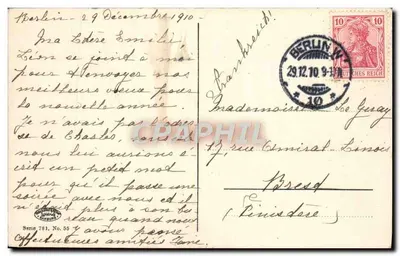 Berlin 29 Décembre 1910
Ma Chère Emilie
Lion se joint à moi
pour t'envoyer nos
meilleurs vœux pour
la nouvelle année.
Je n'avais pas l'adres
se de Charles, sans
nous lui aurions é-
crit un petit mot
pour qu'il passe une
soirée avec nous et
n'était plus à son
quand nous
y avons passé
Affectueuses amitiés
Serie 791. No. 55
Frankreich
BERLIN.W
29.12.10.9-
10
10 10
DEUTSCHES REICH
Mademoiselle Le
17, rue Amiral Linois
Brest
(Finistère)
CPAPHIL